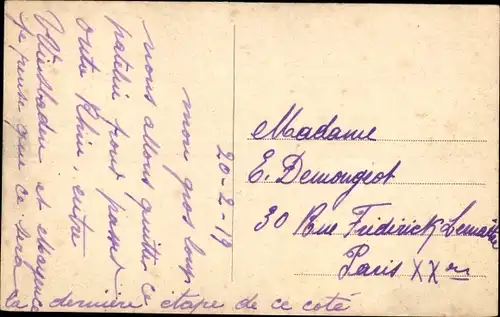 20-2-19
mon gros loup
nous allons quitter ce
patelin pour passer
outre Rhin, entre
Wiesbaden et
je pense que ce sera
la dernière étape de ce coté
Madame
E. Demongeot
30 Rue Fréderick Lemaitre
Paris XXme